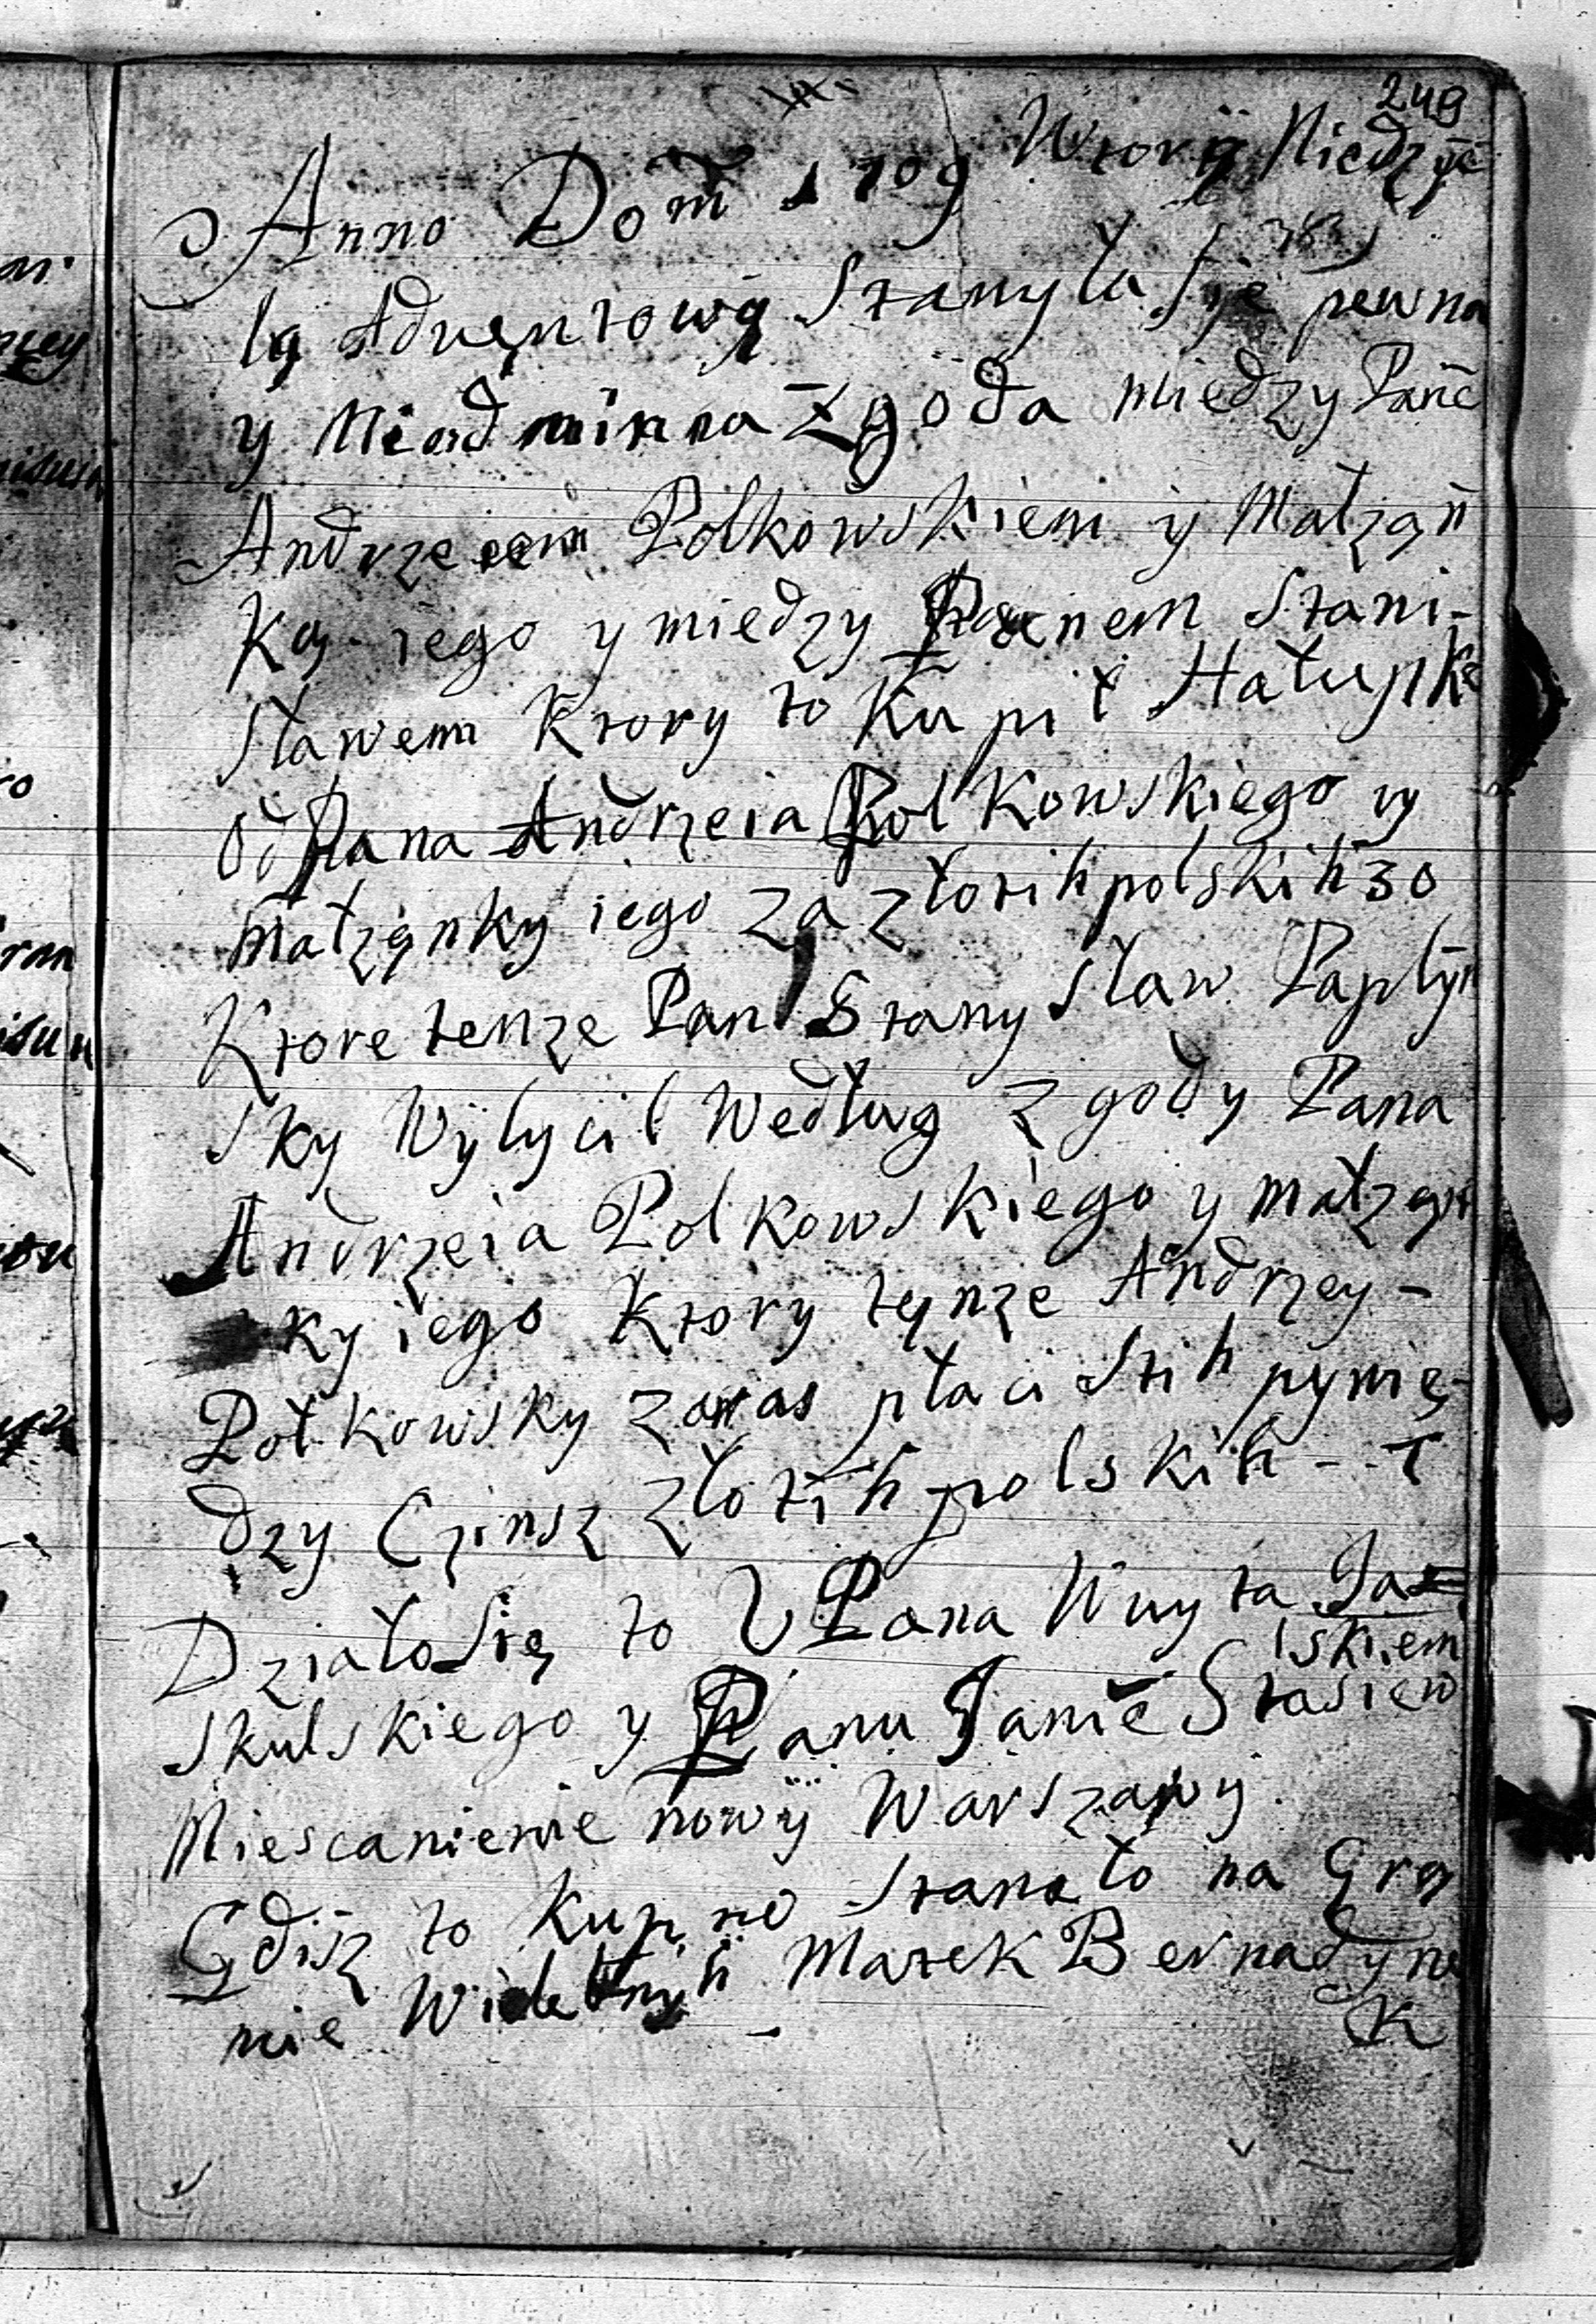 249
Anno Dom 1709 Wtorÿ Niedzye
lą Adventową Stanyła sye pewna
y Nieodminna zgoda miedzy Pane
Andrzeeem Polkowskiem y Małząn
Ką iego y miedzy Panem Stani-
sławem Ktory to Kupił Hałupke
Od Pana Andrzeia Polkowskiego y
małząnky iego za złotih polskih 30
Ktore tenze Pan Stanysław Paplÿn
sky Wÿlycil Według zgody Pana
Andrzeia Polkowskiego y małząn
ky iego Ktory tęnze Andrzey -
Połkowsky zaras płaci stih pynię-
dzy Czinsz złotih polskih -- T
Działo Się to V Pana Wuyta Ja=
skulskiego y Panu Janie Stasiew
iskiem
Miescanienie nowÿ Warszawÿ
Gdisz to Kupno stanało na Grą
nie Marek Bernadyne
K